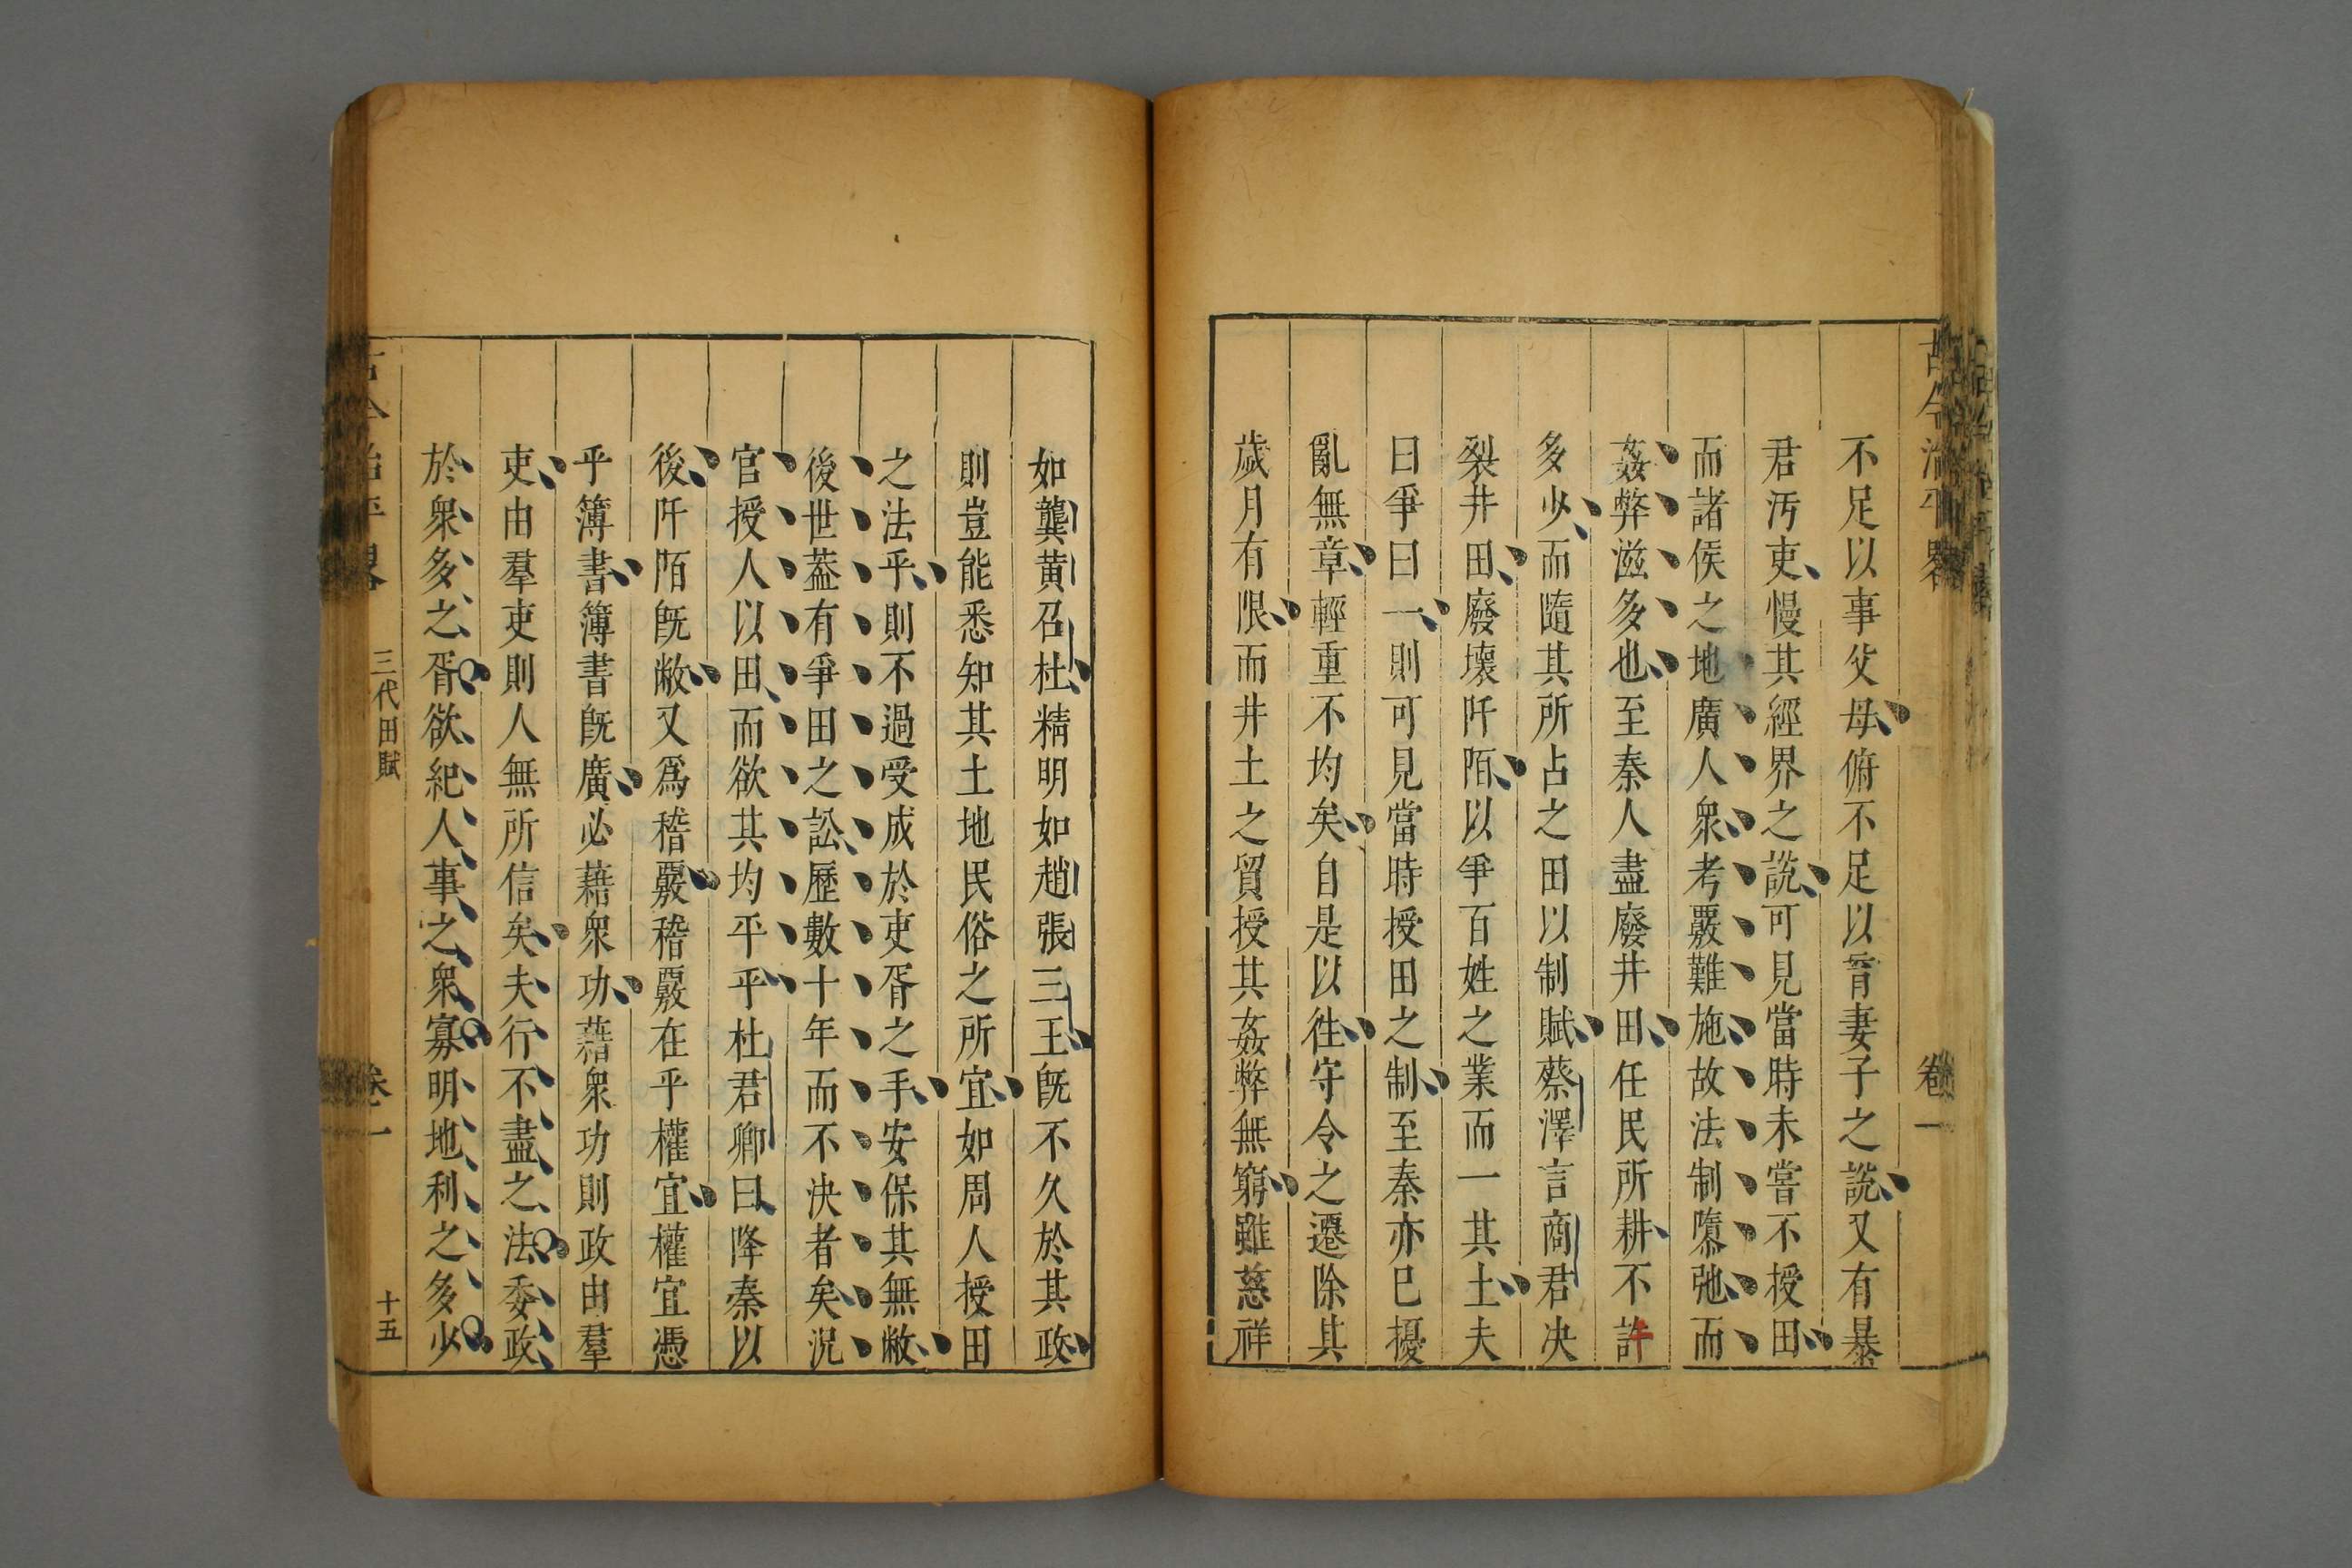 古今治平畧
卷一
不足以事父母俯不足以育妻子之說又有暴
君汚吏慢其經界之說可見當時未嘗不授田
而諸侯之地廣人衆考覈難施故法制隳弛而
姦弊滋多也至秦人盡廢井田任民所耕不許
多少而隨其所占之田以制賦蔡澤言商君决
裂井田廢壞阡陌以爭百姓之業而一其土夫
曰爭曰一則可見當時授田之制至秦亦已擾
亂無章輕重不均矣自是以徃守令之遷除其
歲月有限而井土之貿授其姦弊無窮雖慈祥
如龔黄召杜精明如趙張三王旣不久於其政
則豈能悉知其土地民俗之所宜如周人授田
之法乎則不過受成於吏胥之手安保其無敝
後世葢有爭田之訟歷數十年而不決者矣况
官授人以田而欲其均平乎杜君卿曰降秦以
後阡陌旣敝又爲稽覈稽覈在乎權宜權宜憑
乎簿書簿書旣廣必藉衆功藉衆功則政由羣
吏由羣吏則人無所信矣夫行不盡之法委政
於衆多之胥欲紀人事之衆寡明地利之多少
古今治平畧
三代田賦
卷一
十五